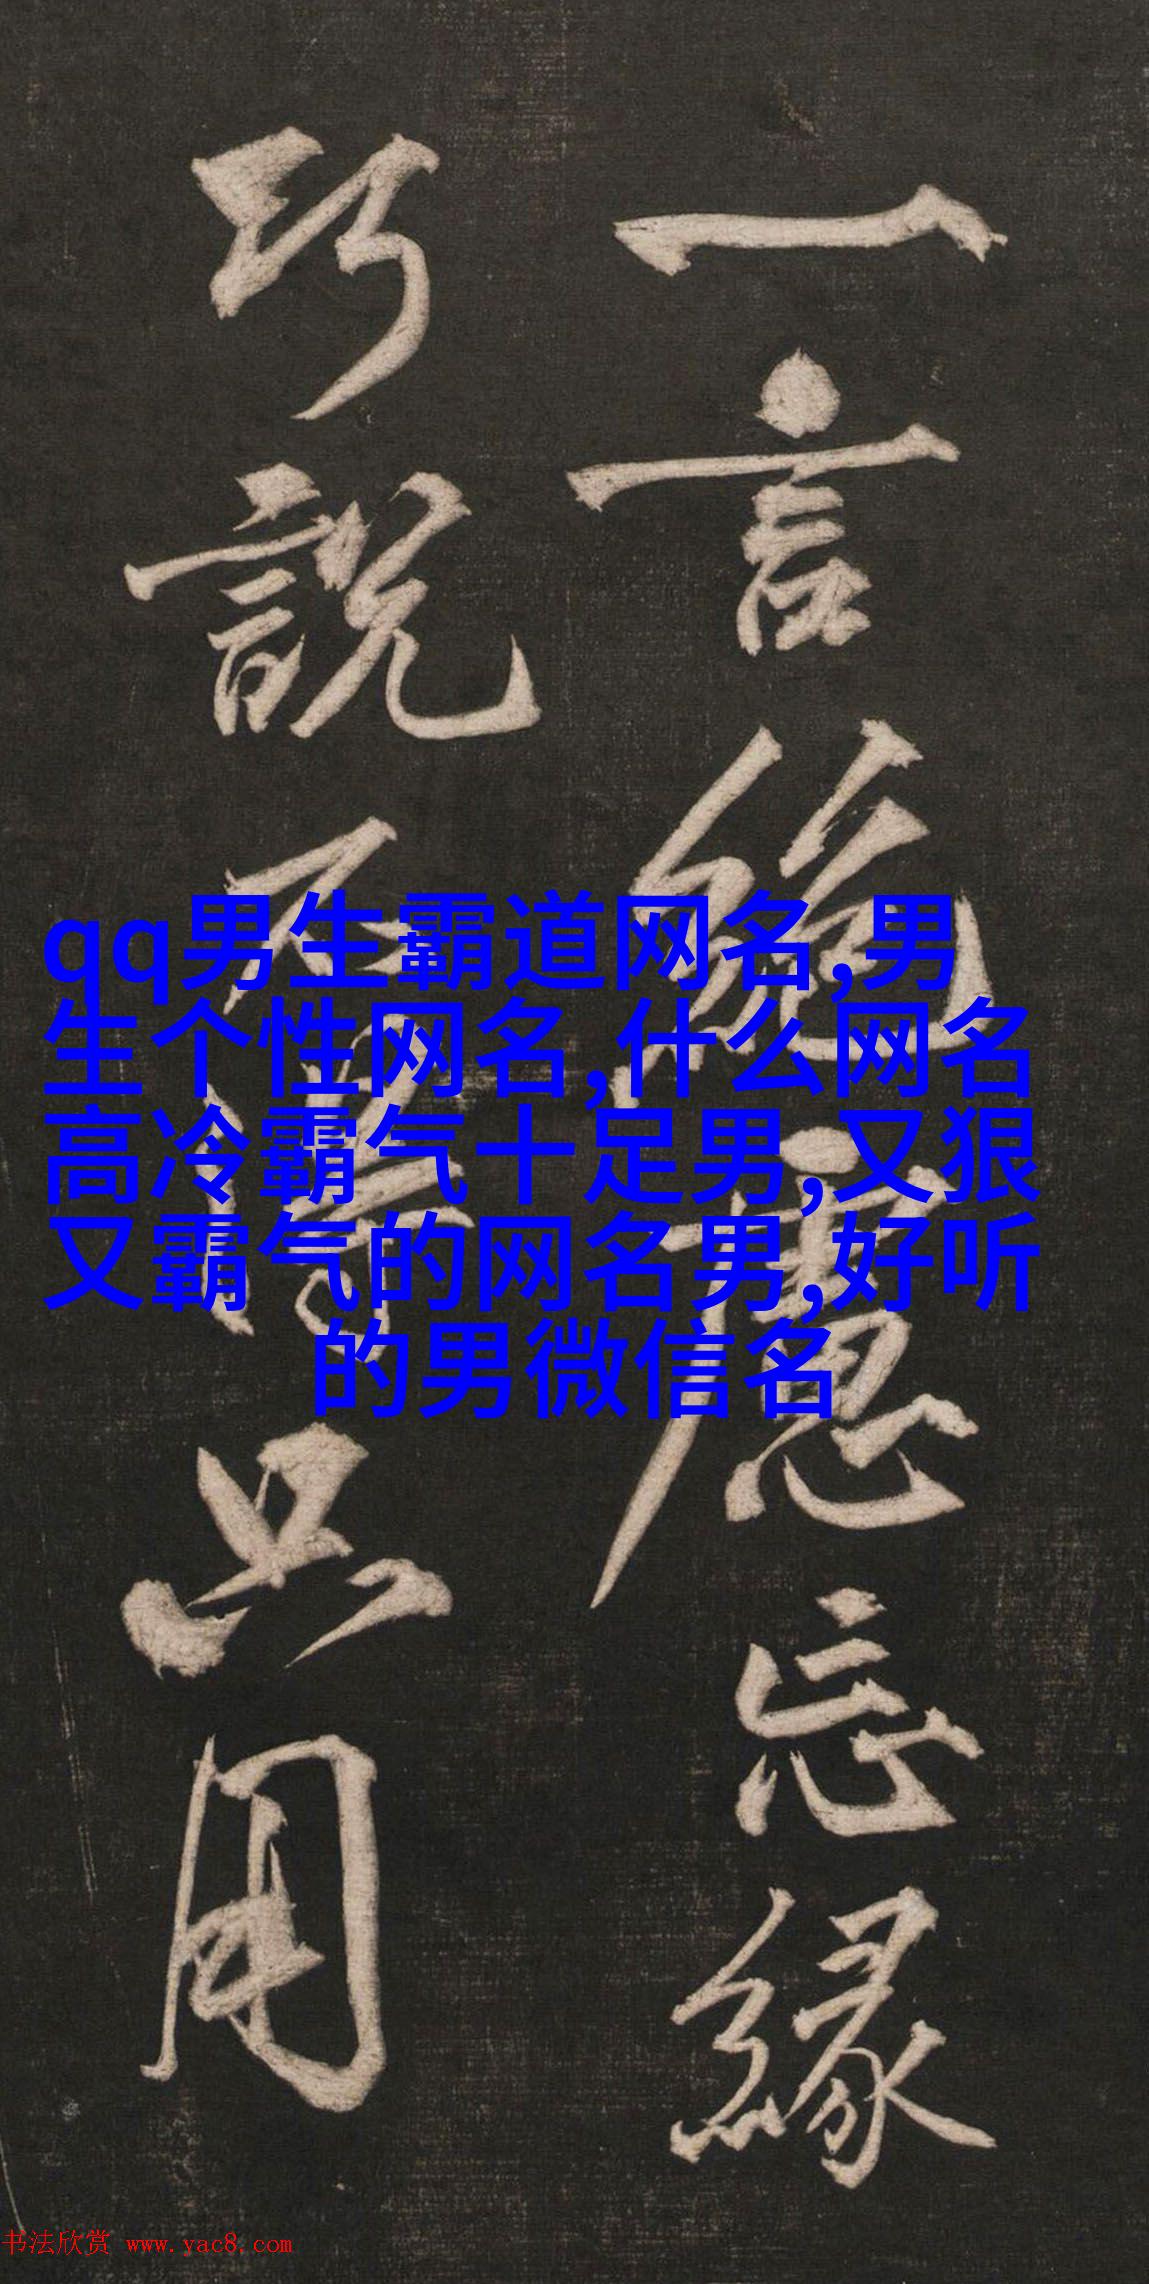 一言絶慮忘緣
巧說不得只用
qq男生霸道网名,男
生个性网名,什么网名
高冷霸气十足男,又狠
又霸气的网名男,好听
的男微信名
书法欣赏 www.yac8.com